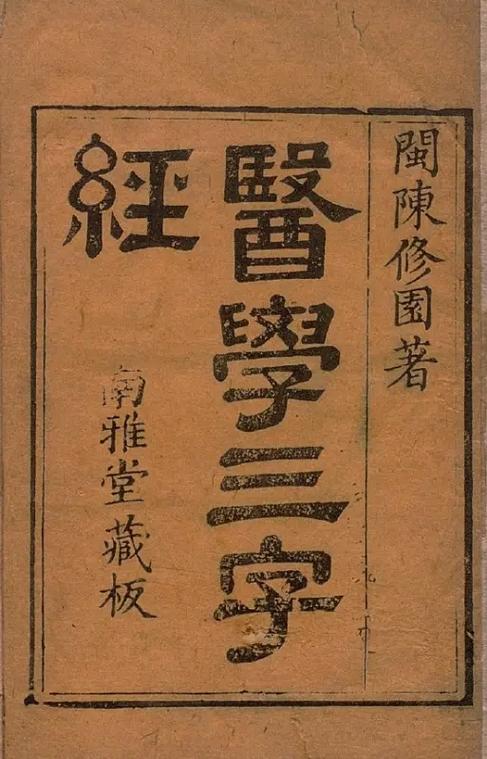 閩陳修園著
醫學三字
經
南雅堂藏板